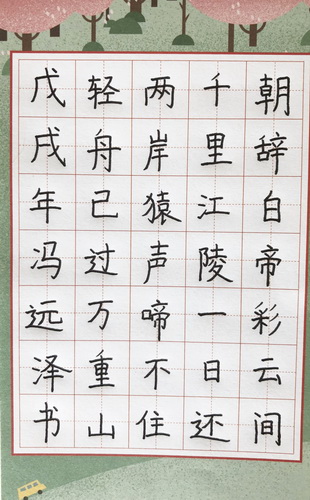 朝辞白帝彩云间
千里江陵一日还
两岸猿声啼不住
轻舟已过万重山
戊戌年冯远泽书